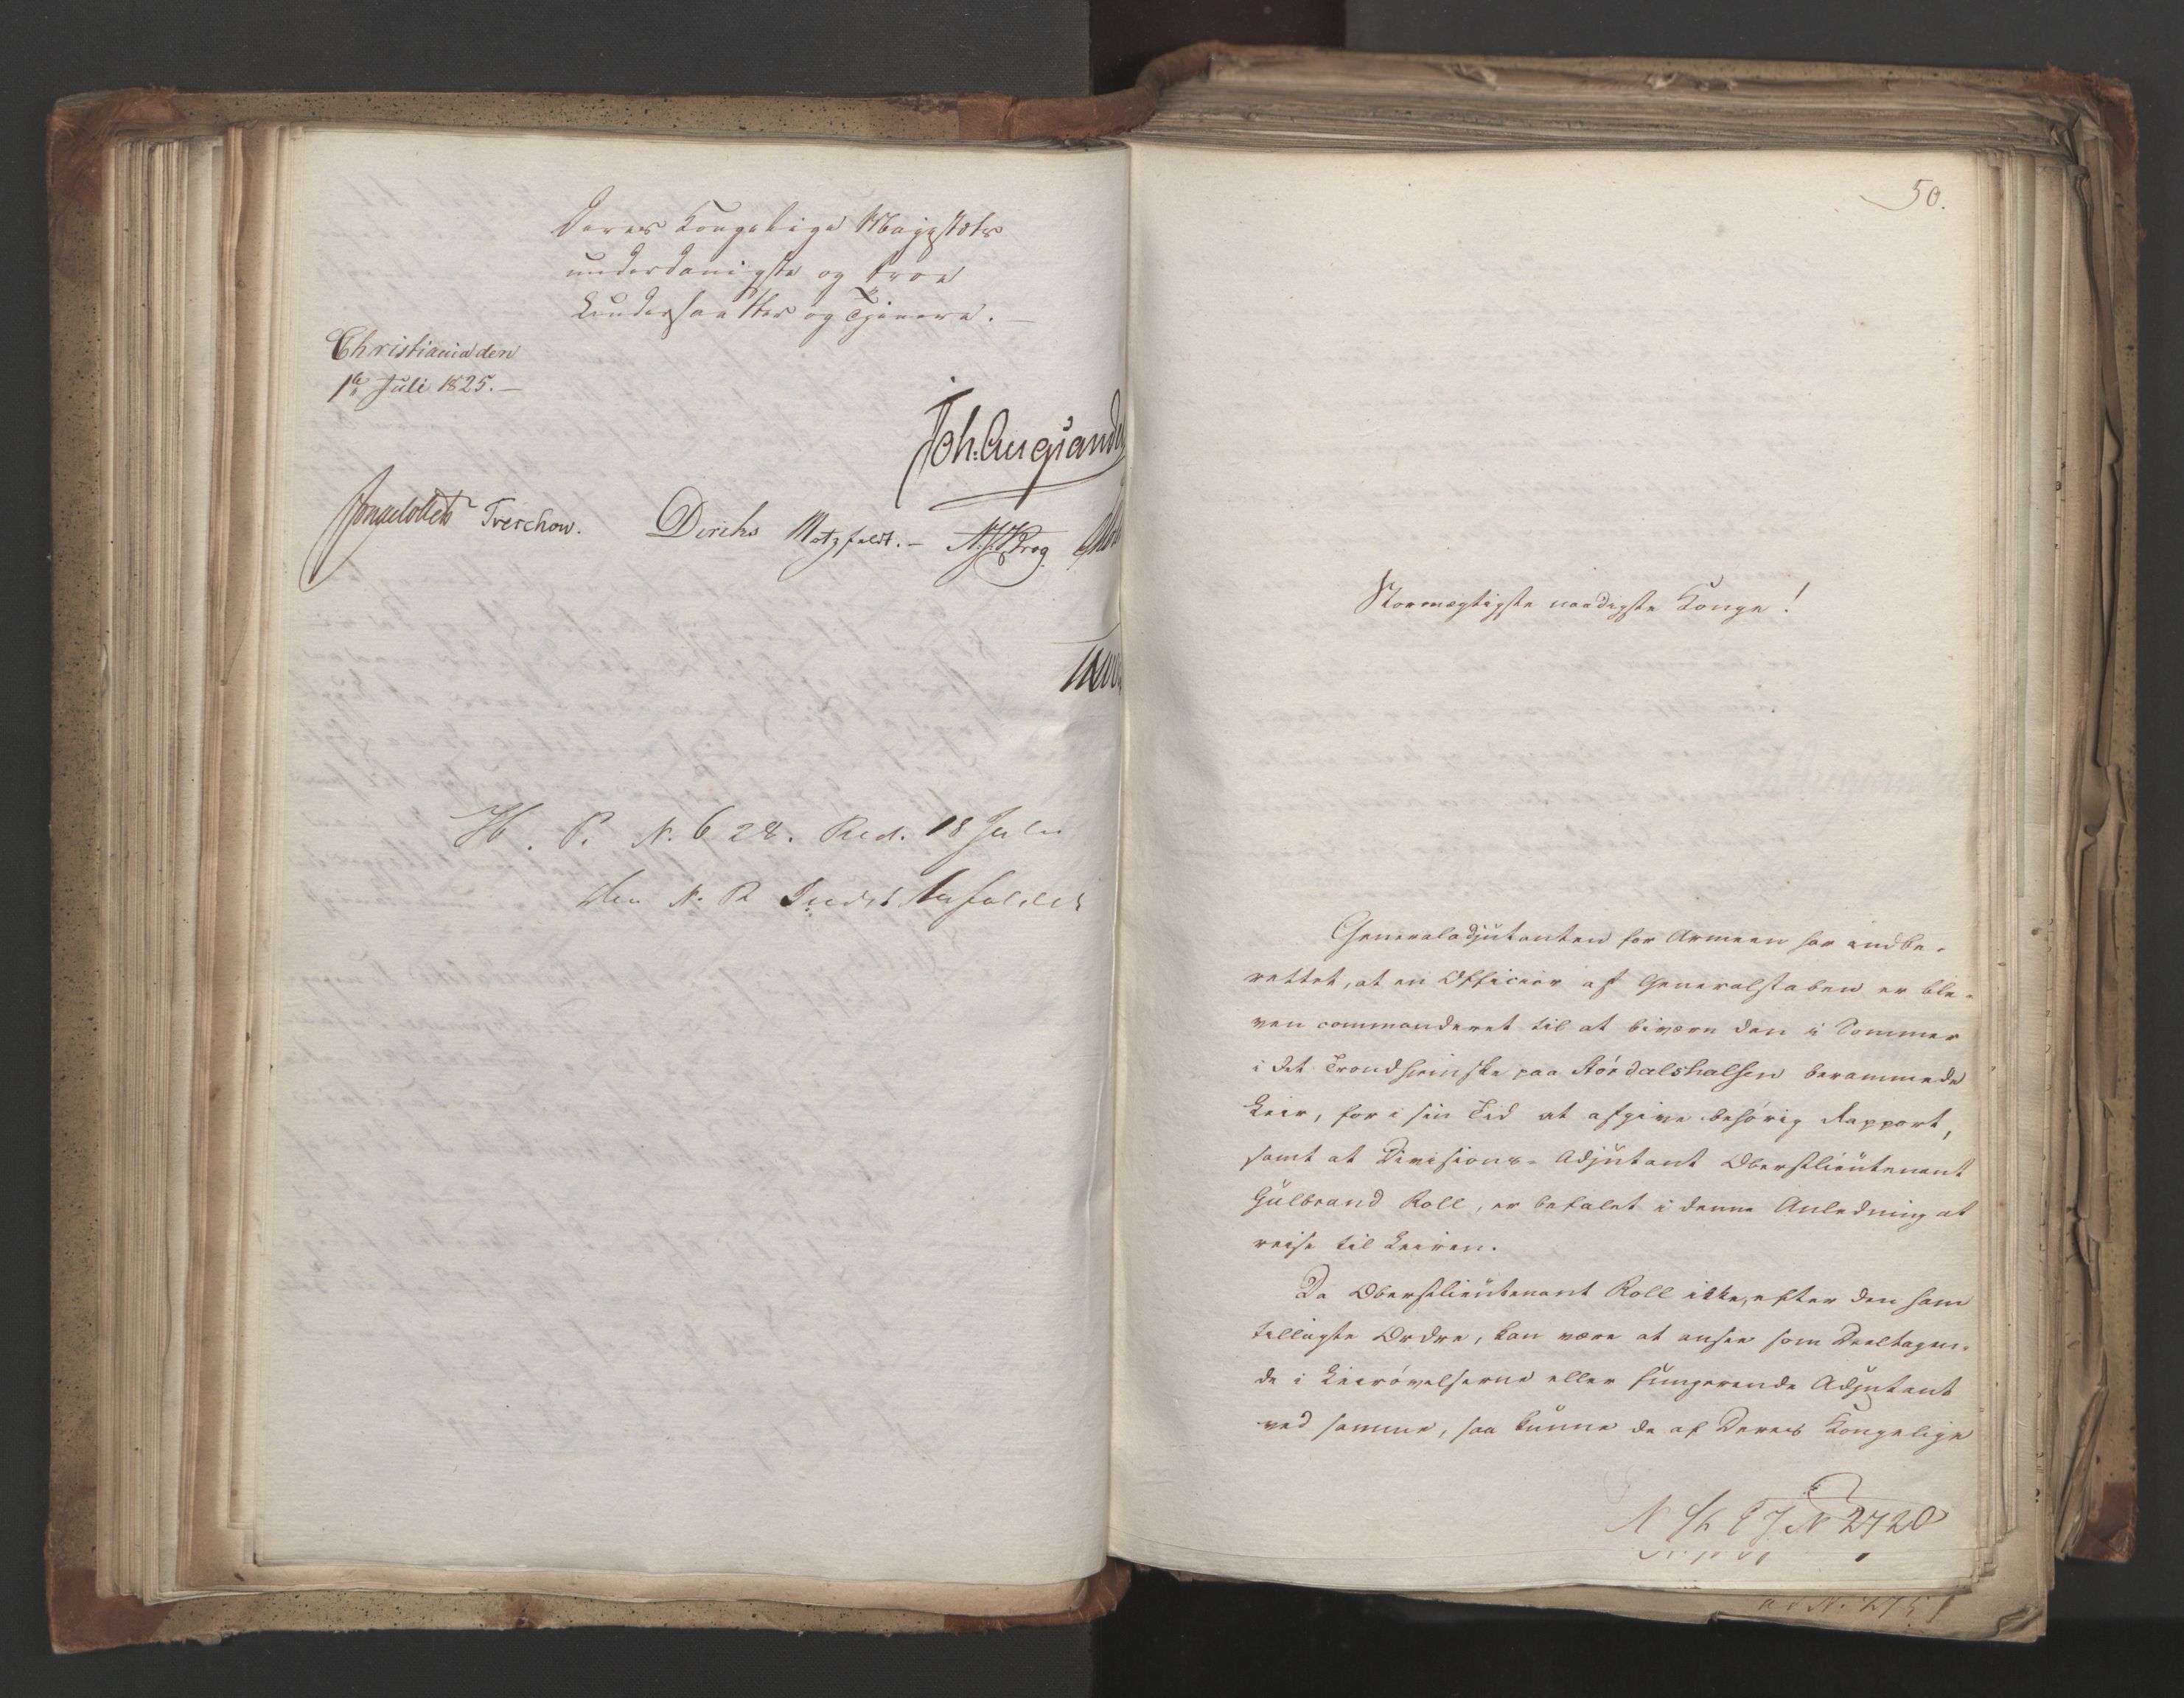 Deres Kongelige Majestæts
underdanigste og troe
Undersaatter og Tjenere.
Christiania den
1te Juli 1825.
Joh. Aug. Sande
Jonas Collett Treschow. Diriks Motzfeldt. N. J. Krog
H. P. N. 628. Red. 18 Juli
den N. R. Indst. bifaldet
50.
Stormægtigste naadigste Konge!
Generaladjutanten for Armeen har indbe-
rettet, at en Officier af Generalstaben er ble-
ven commanderet til at bivære den i Sommer
i det Trondhjemske paa Stördalshalsen berammede
Leir, for i sin Tid at afgive behörig Rapport,
samt at Divisions-Adjutant Oberstlieutenant
Gulbrand Roll, er befalet i denne Anledning at
reise til Leiren.
Da Oberstlieutenant Roll ikke, efter den ham
tillagte Ordre, kan være at ansee som Deeltagen-
de i Leirövelserne eller fungerende Adjutant
ved samme, saa kunne de af Deres Kongelige
N 2720
ad N. 2751